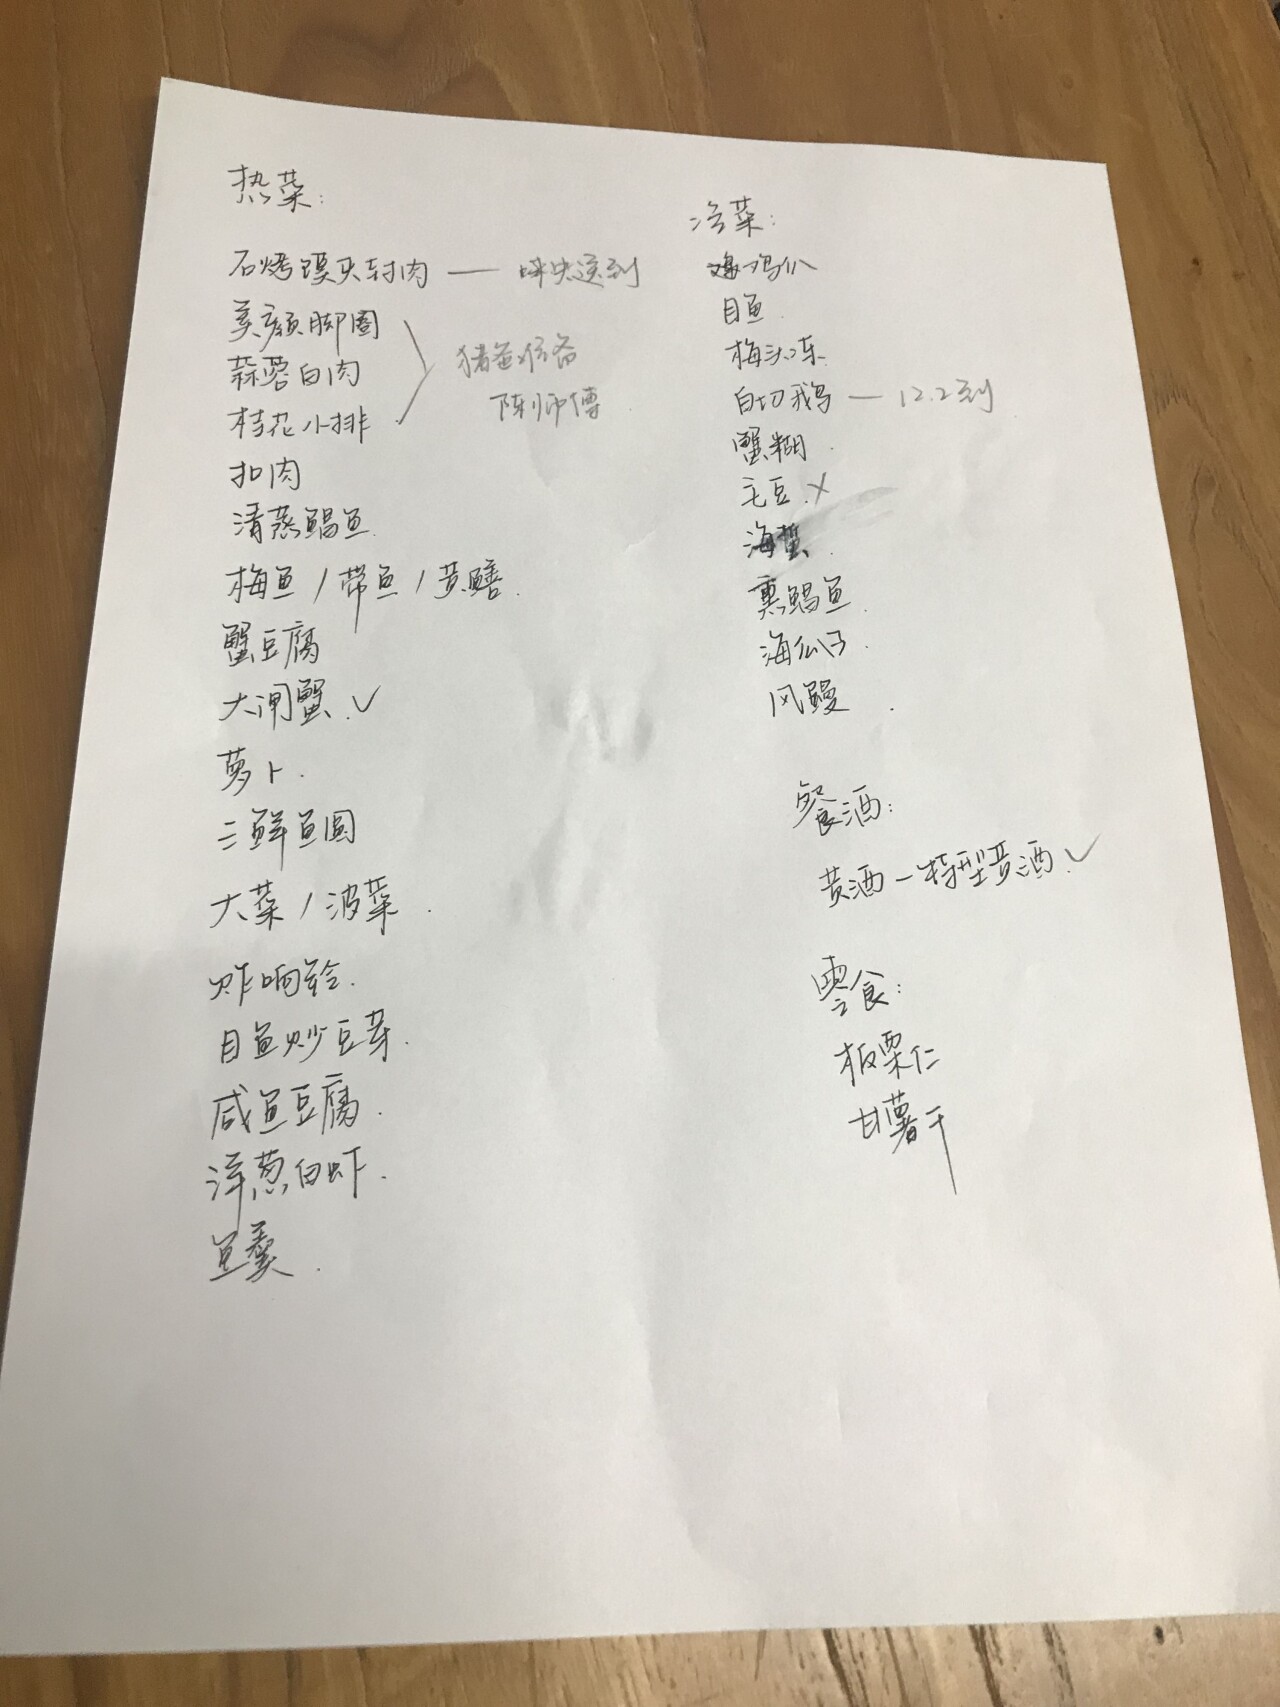 热菜:
石烤馒头封肉 —
美颜脚圈
蒜蓉白肉
桂花小排
猪爸准备
陈师傅
扣肉
清蒸鲳鱼
梅鱼/带鱼/黄鳝.
蟹豆腐
大闸蟹.✓
萝卜.
三鲜鱼圆
大菜/菠菜.
炸响铃.
目鱼炒豆芽.
咸鱼豆腐.
洋葱白虾.
鱼羹.
冷菜:
目鱼
梅头冻.
白切鹅 — 12.2到
蟹糊.
毛豆.×
海蜇.
熏鲳鱼.
海瓜子.
风鳗.
餐酒:
黄酒—特型黄酒.✓
零食:
板栗仁
甘薯干